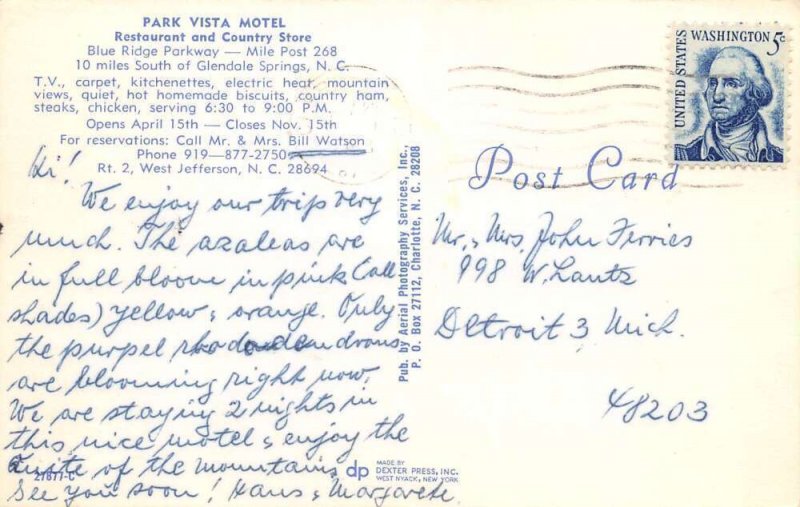 PARK VISTA MOTEL
Restaurant and Country Store
Blue Ridge Parkway — Mile Post 268
10 miles South of Glendale Springs, N. C.
T.V., carpet, kitchenettes, electric heat, mountain
views, quiet, hot homemade biscuits, country ham,
steaks, chicken, serving 6:30 to 9:00 P.M.
Opens April 15th — Closes Nov. 15th
For reservations: Call Mr. & Mrs. Bill Watson
Phone 919—877-2750
Rt. 2, West Jefferson, N. C. 28694
Hi!
We enjoy our trip very
much. The azaleas are
in full bloove in pink (all
shades) yellow & orange. Only
the purpel rhododendrons
are blooming right now.
We are staying 2 nights in
this nice motel & enjoy the
quite of the mountains
See you soon! Hans & Margarete
27877-C
Pub. by Aerial Photography Services, Inc.,
P. O. Box 27112, Charlotte, N. C. 28208
dp
MADE BY
DEXTER PRESS, INC.
WEST NYACK, NEW YORK
UNITED STATES
WASHINGTON 5c
Post Card
Mr. & Mrs. John Ferries
998 W. Lantz
Detroit 3 Mich.
48203